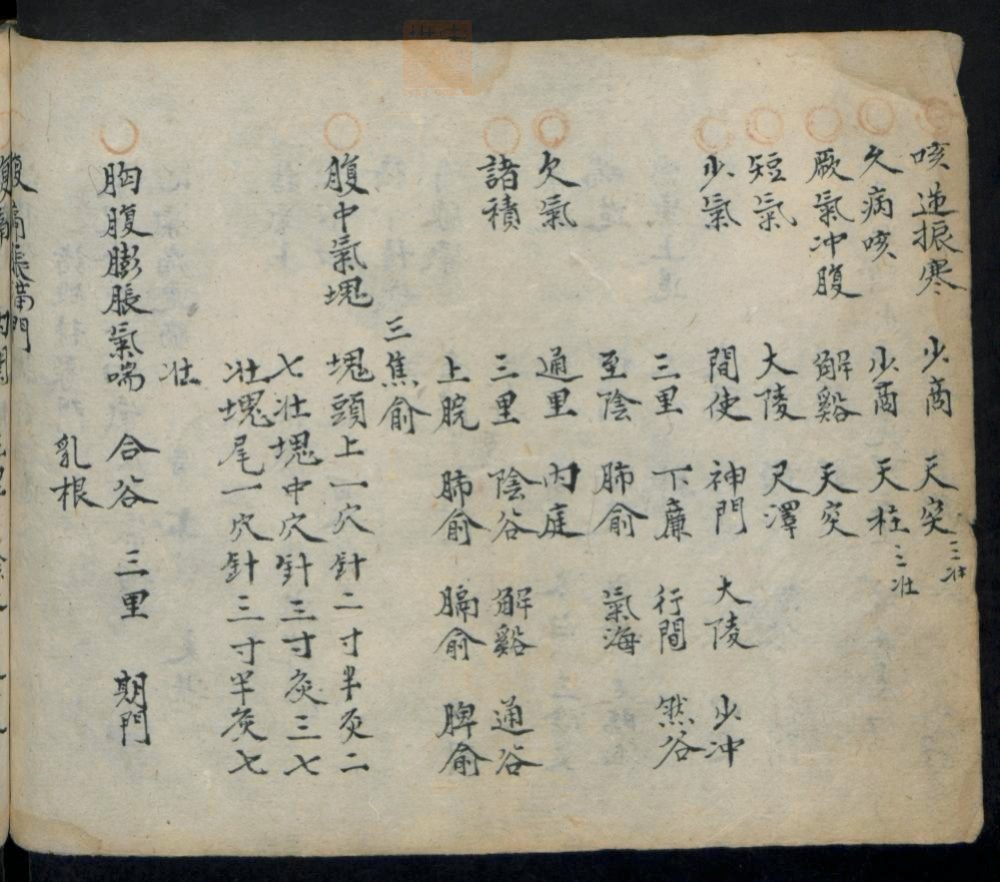 咳逆振寒 少商 天突 三壮
久病咳 少商 天柱 三壮
厥氣冲腹 解谿 天突
短氣 大陵 尺澤
少氣 間使 神門 大陵 少冲
三里 下廉 行間 然谷
至陰 肺俞 氣海
欠氣 通里 內庭
諸積 三里 陰谷 解谿 通谷
上脘 肺俞 膈俞 脾俞
三焦俞
腹中氣塊 塊頭上一穴針二寸半灸二
七壮塊中穴針三寸灸三七
壮塊尾一穴針三寸半灸七
壮
胸腹膨脹氣喘 合谷 三里 期門
乳根